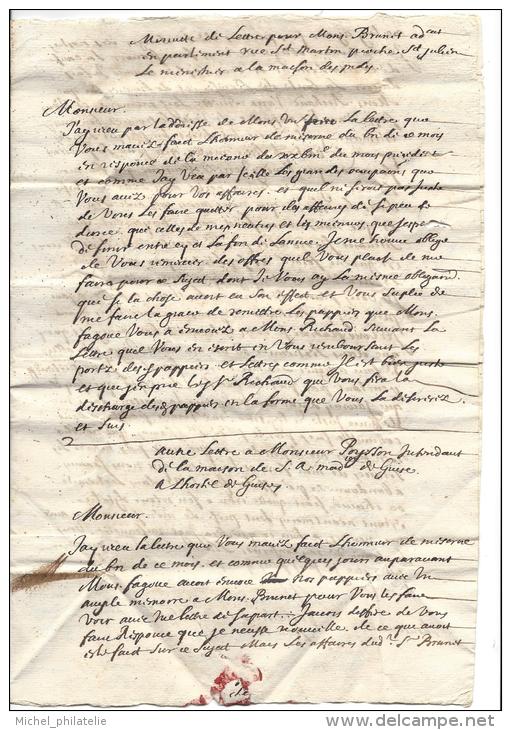 Minutte de Lettre pour Mons. Brunet adcat
en parlement rue St martin proche St Julien
Le menestrier a la maison des
Monsieur.
J'ay receu par l'adresse de Mons La lettre que
Vous maviez faict Lhonneur de mescrire du bn de ce mois
en responce de la mienne du du mois precedent
et comme Jay Veu par Icelle Les grandes ocupaons que
Vous aviez pour Vos affaires. et quil ne seroit pas Juste
de Vous Les faire quitter pour des affaires de si peu de
duree que celles de mes neveux et les miennes, que Jespe
de finir entre cy et La fin de Lannee, Je me trouve oblige
de Vous remercier des offres quil Vous plaict de me
faire pour ce Sujet dont Je Vous ay La mesme obligaon
que si la chose avoit eu son effect, et Vous suplie de
me faire la grace de remettre Les pappiers que Mons.
fagoue Vous a envoiez a Mons Richaud. suivant La
Lettre quil Vous en escrit en Vous remboursant Les
portz des pappiers et Lettres comme Il est bien juste
et que jen prie led. Sr. Richaud que Vous fera la
descharge des pappiers en la forme que Vous La desirerez
et suis
autre Lettre a Monsieur Poysson Intendant
de la maison de S. A. mad de Guise
a Lhostel de Guise
Monsieur.
Jay receu la lettre que Vous maviez faict Lhonneur de mescrire
du bn de ce mois. et comme quelques jours auparavant
Mons. fagoue avoit envoie nos pappiers avec Un
ample memoire a Mons. Brunet pour Vous les faire
voir avec Une lettre de sa part. Javois differe de Vous
faire Responce que je neusse nouvelle de ce que avoit
este faict sur ce Sujet Mais Les affaires dud. Sr Brunet
Michel_philatelie
www.delcampe.net